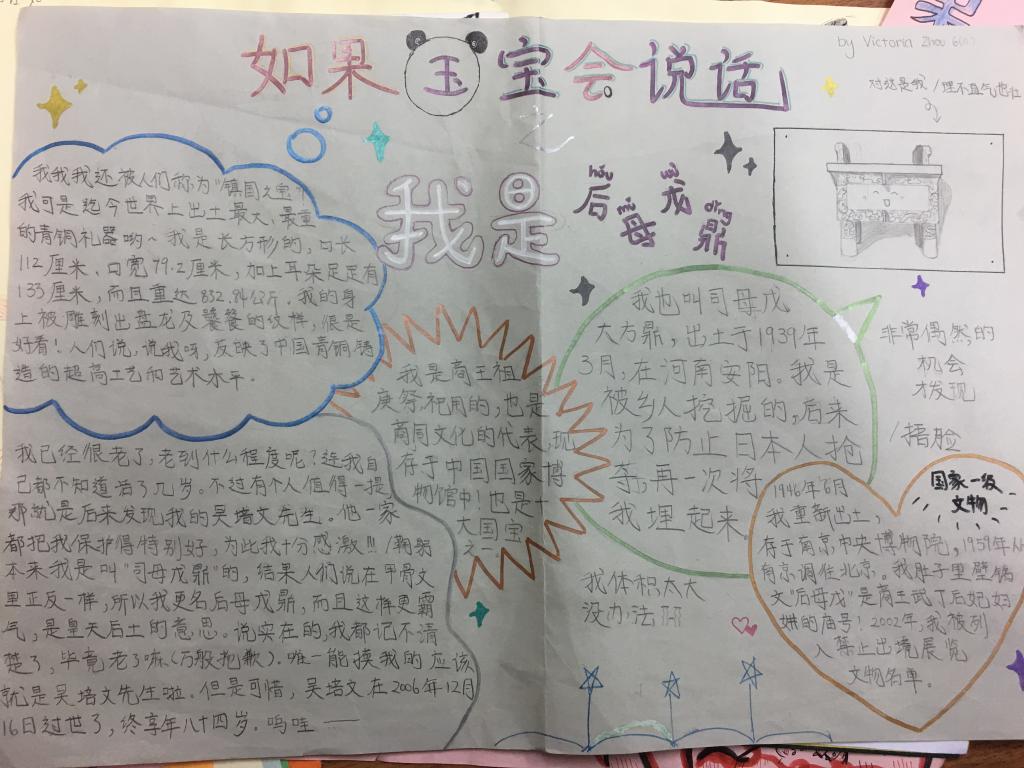 by Victoria Zhou 6(1)
如果国宝会说话
之
对这是我/理不直气也壮
我是
hòu mǔ wù dǐng
后母戊鼎
我我我还被人们称为"镇国之宝"!
我可是迄今世界上出土最大、最重
的青铜礼器哟~我是长方形的,口长
112厘米、口宽79.2厘米,加上耳朵足足有
133厘米,而且重达832.84公斤.我的身
上被雕刻出盘龙及饕餮的纹样,很是
好看!人们说,说我呀,反映了中国青铜铸
造的超高工艺和艺术水平.
我是商王祖
庚祭祀用的,也是
商周文化的代表,现
存于中国国家博
物馆中!也是
大国宝
之一
我也叫司母戊
大方鼎,出土于1939年
3月,在河南安阳。我是
被乡人挖掘的,后来
为了防止日本人抢
夺,再一次将
我埋起来.
非常偶然的
机会
发现
/捂脸
国家一级
文物
1946年6月
我重新出土,
存于南京中央博物院。1959年从
南京调往北京。我肚子里壁铭
文"后母戊"是商王武丁后妃妇
妌的庙号!2002年,我被列
入禁止出境展览
文物名单.
我体积太大
没办法啊
我已经很老了,老到什么程度呢?连我自
己都不知道活了几岁。不过有个人值得一提,
那就是后来发现我的吴培文先生。他一家
都把我保护得特别好,为此我十分感激!!!/鞠躬
本来我是叫"司母戊鼎"的,结果人们说在甲骨文
里正反一样,所以我更名后母戊鼎,而且这样更霸
气,是皇天后土的意思。说实在的,我都记不清
楚了,毕竟老了嘛(万般抱歉).唯一能摸我的应该
就是吴培文先生啦.但是可惜,吴培文在2006年12月
16日过世了,终享年八十四岁.呜哇——